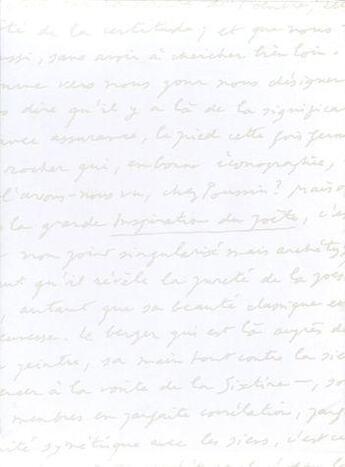 té de la certitude ; et que nous
ussi, sans avoir à chercher très loin.
comme vers nous pour nous désigner
s dire qu'il y a là de la significa
avec assurance, le pied cette fois ferm
rocher qui, en bonne iconographie,
l'avons-nous vu, chez Poussin ? Mais o
la grande Inspiration du poète, c'es
non point singularisé mais
qu'il révèle la pureté de la poé
, autant que sa beauté classique e
jeunesse. Le berger qui est là auprès d
peintre, sa main tout contre la sie
à la voûte de la Sixtine —, so
membres en parfaite corrélation, parf
ité symétrique avec les siens, c'est ce